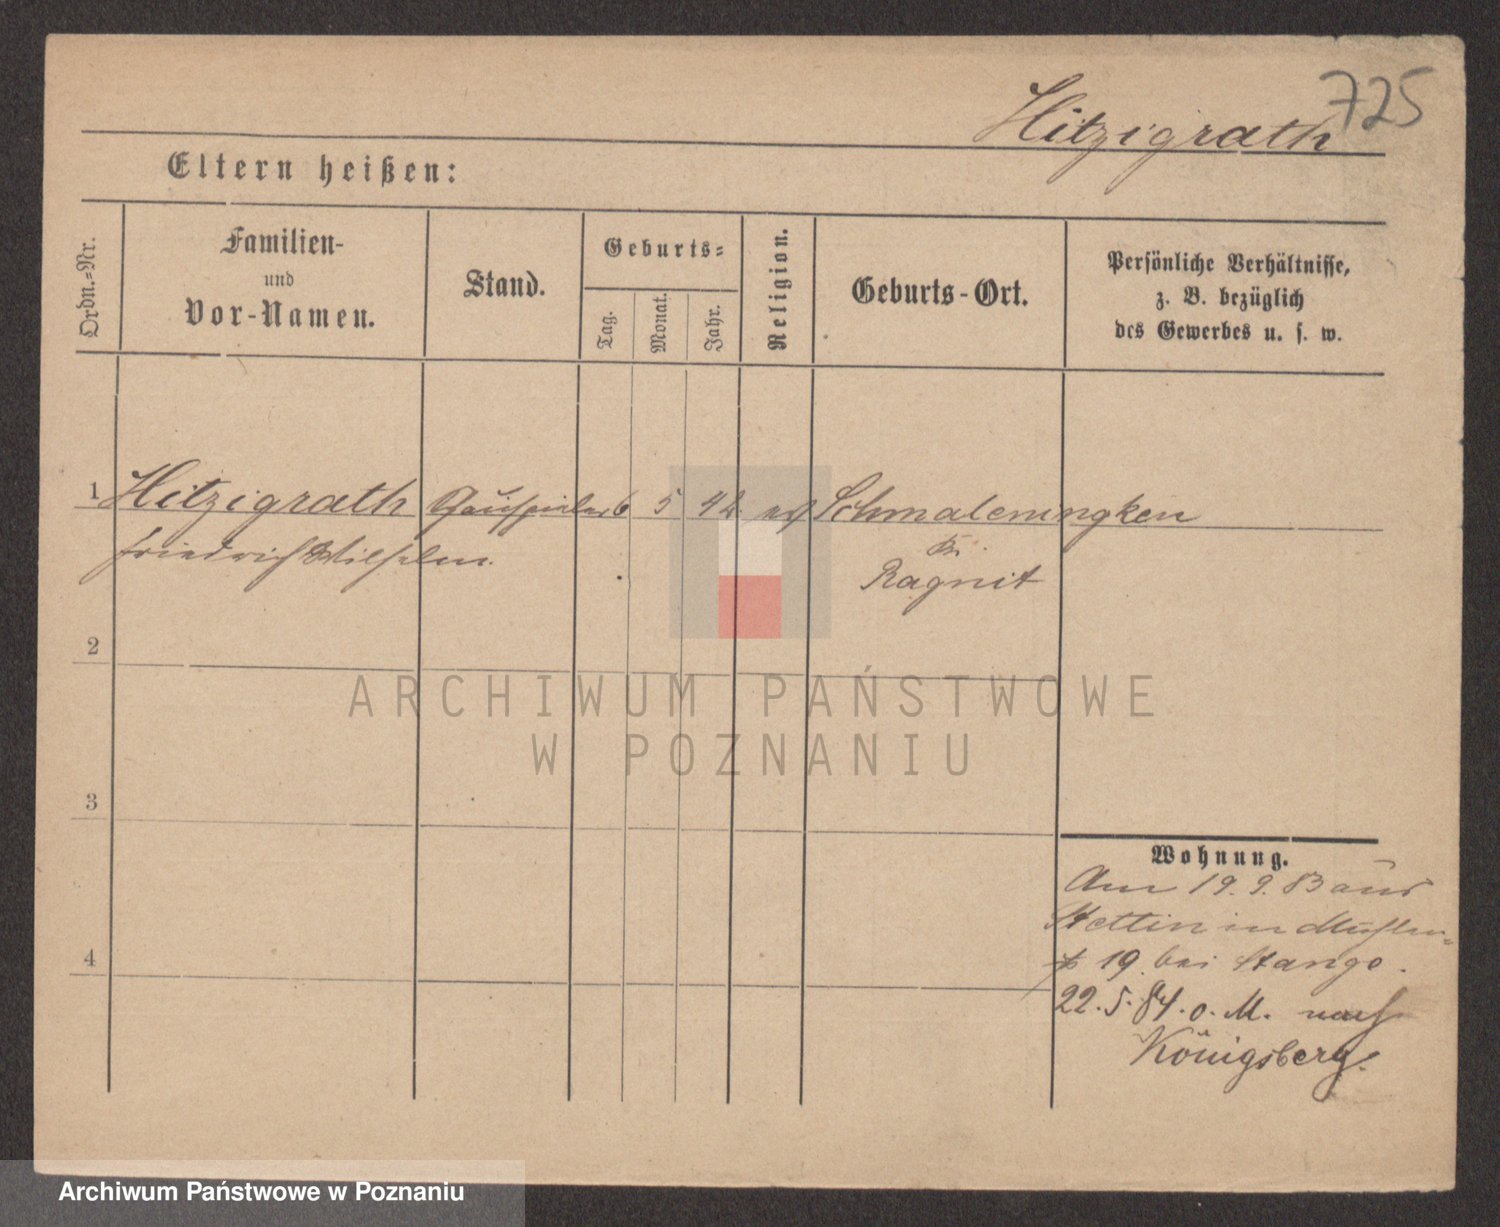 725
Hitzigrath
Eltern heißen:
Ordn.-Nr.
Familien-
und
Vor-Namen.
Stand.
Geburts-
Tag.
Monat.
Jahr.
Religion.
Geburts-Ort.
Persönliche Verhältnisse,
z. B. bezüglich
des Gewerbes u. s. w.
1 Hitzigrath Schauspieler 6 5 42 ev Schmaleningken
Friedrich Wilhelm
Kr.
Ragnit
2
3
4
ARCHIWUM PAŃSTWOWE
W POZNANIU
Wohnung.
Am 19. 9. 83 aus
Stettin in Mühlen-
19 bei Stange.
22. 5. 84. o. M. nach
Königsberg.
Archiwum Państwowe w Poznaniu